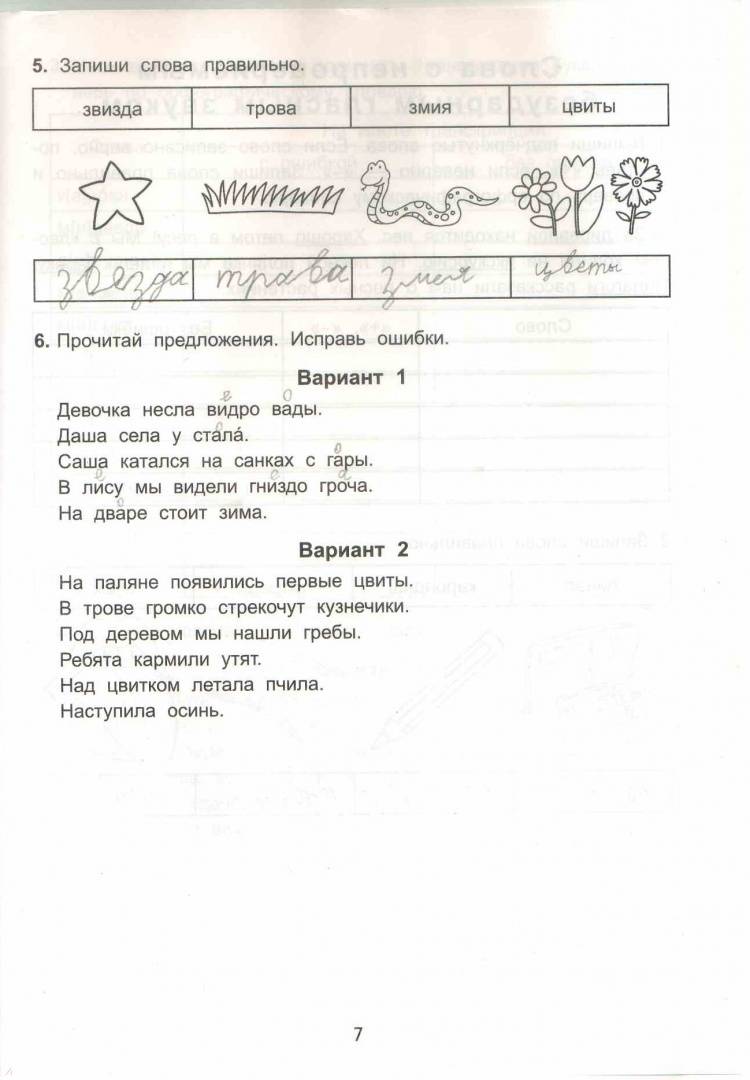 5. Запиши слова правильно.
звизда трова змия цвиты
звезда трава змея цветы
6. Прочитай предложения. Исправь ошибки.
Вариант 1
е о
Девочка несла видро вады.
о
Даша села у сталá.
о
Саша катался на санках с гары.
е е а
В лису мы видели гниздо гроча.
о
На дваре стоит зима.
Вариант 2
На паляне появились первые цвиты.
В трове громко стрекочут кузнечики.
Под деревом мы нашли гребы.
Ребята кармили утят.
Над цвитком летала пчила.
Наступила осинь.
7